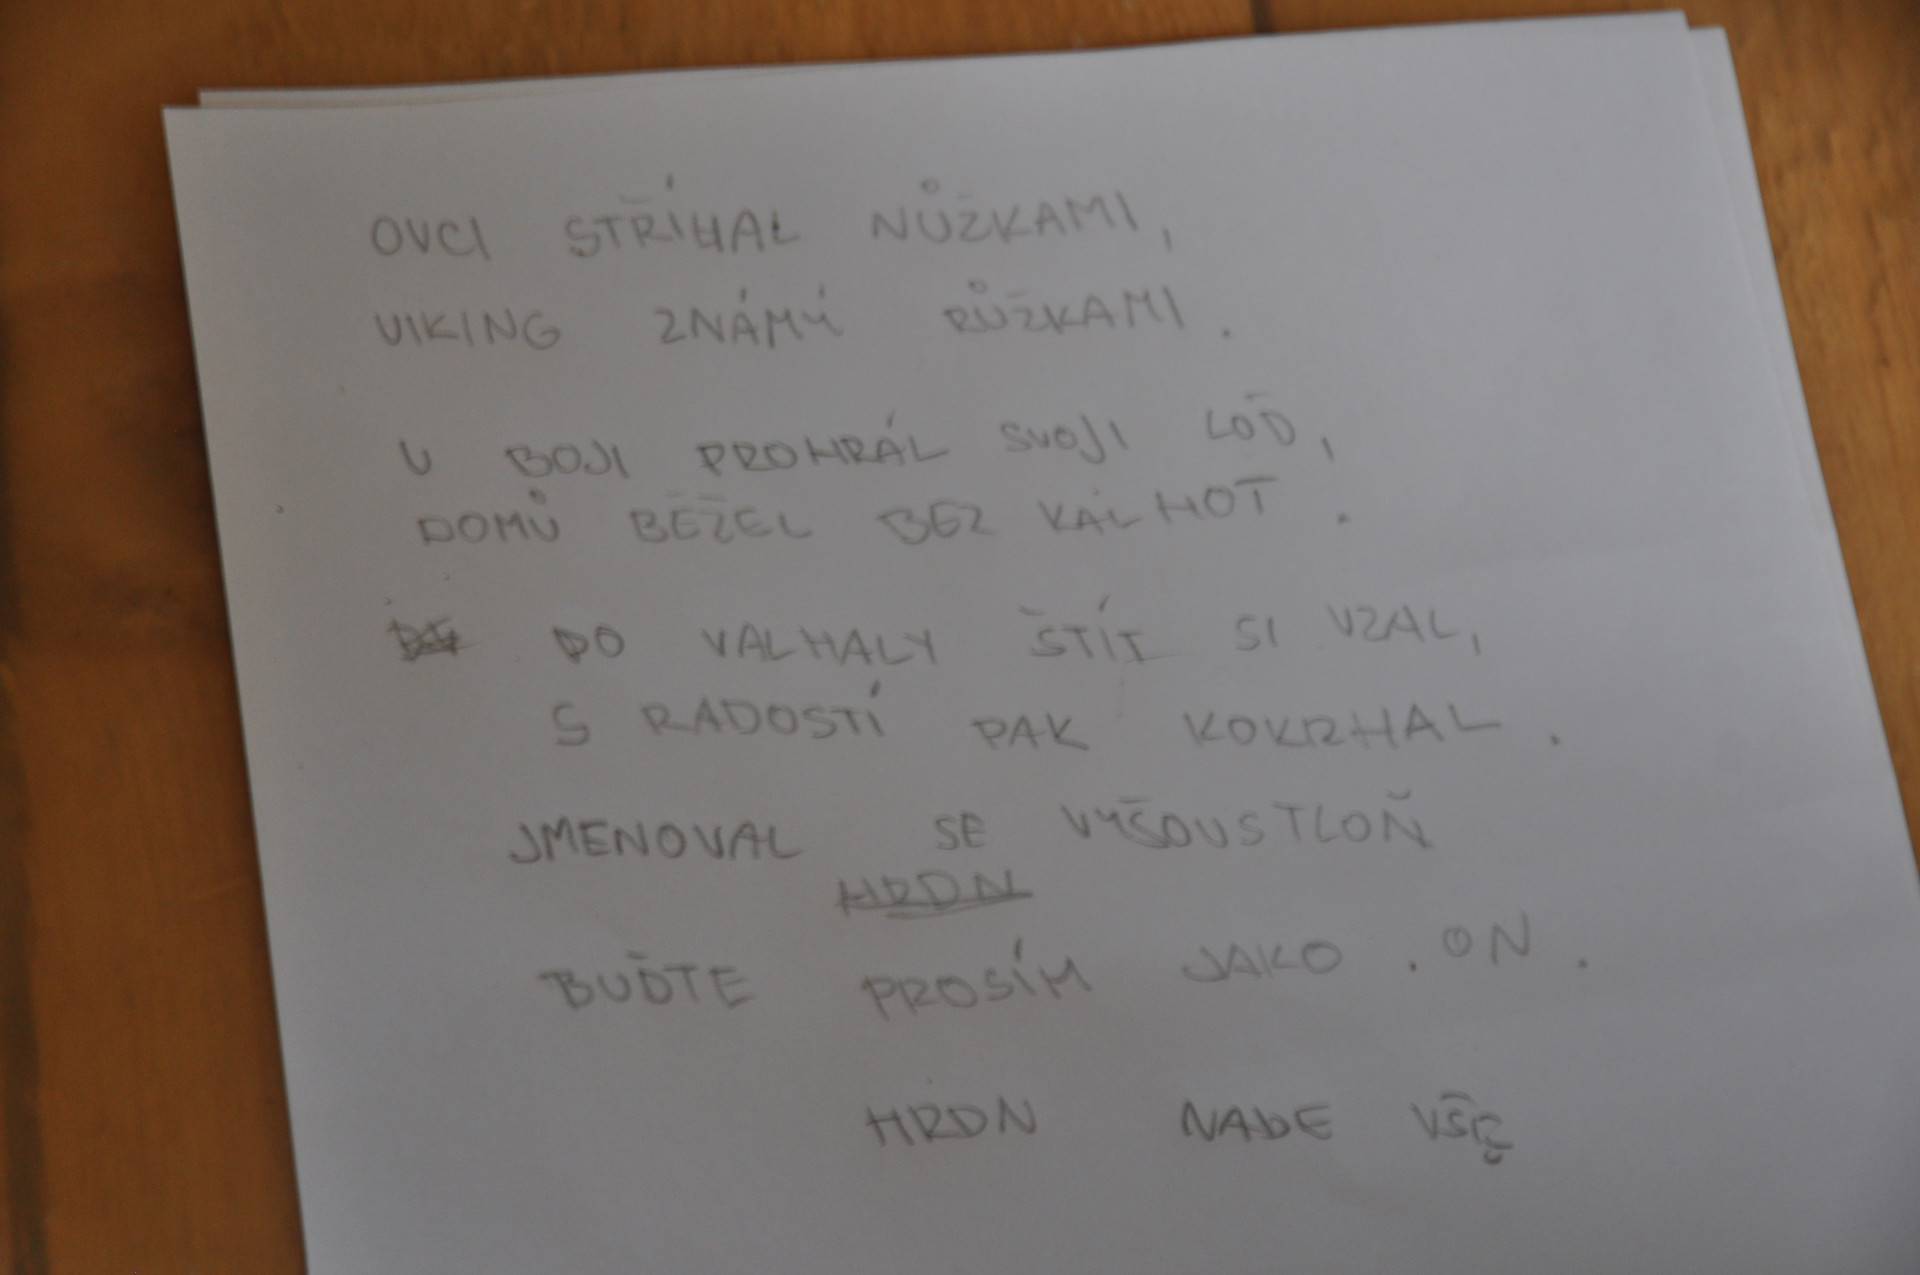 OVCI STŘÍHAL NŮŽKAMI,
VIKING ZNÁMÝ RŮŽKAMI.
V BOJI PROHRÁL SVOJI LOĎ,
DOMŮ BĚŽEL BEZ KALHOT.
DO VALHALY ŠTÍT SI VZAL,
S RADOSTÍ PAK KOKRHAL.
JMENOVAL SE VYŠOUSTLOŇ
HRDN
BUĎTE PROSÍM JAKO. ON.
HRDN NADE VŠE